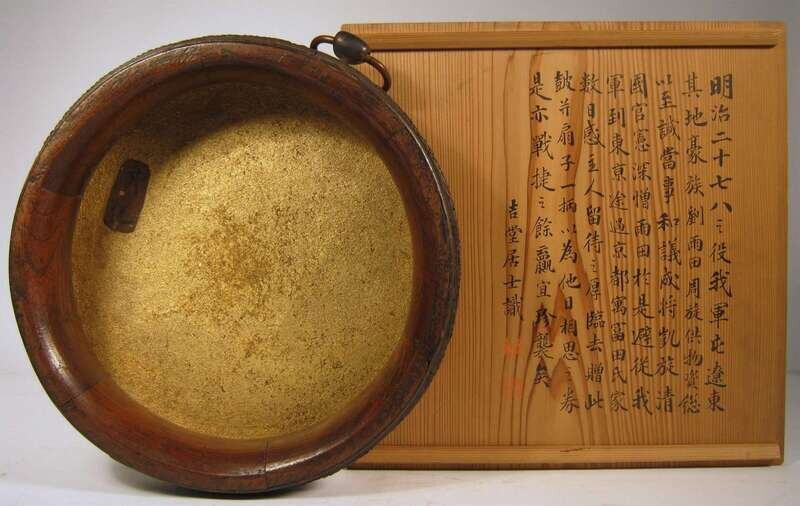 明治二十七八之役我軍屯遼東
其地豪族劉雨田周旋供物資総
以至誠當事和議成将凱旋清
國官憲深憎雨田於是避従我
軍到東京途過京都寓冨田氏家
数日感主人留待之厚臨去贈此
皷并扇子一柄以為他日相思之券
是亦戰捷之餘贏宜珍襲矣
吉堂居士識